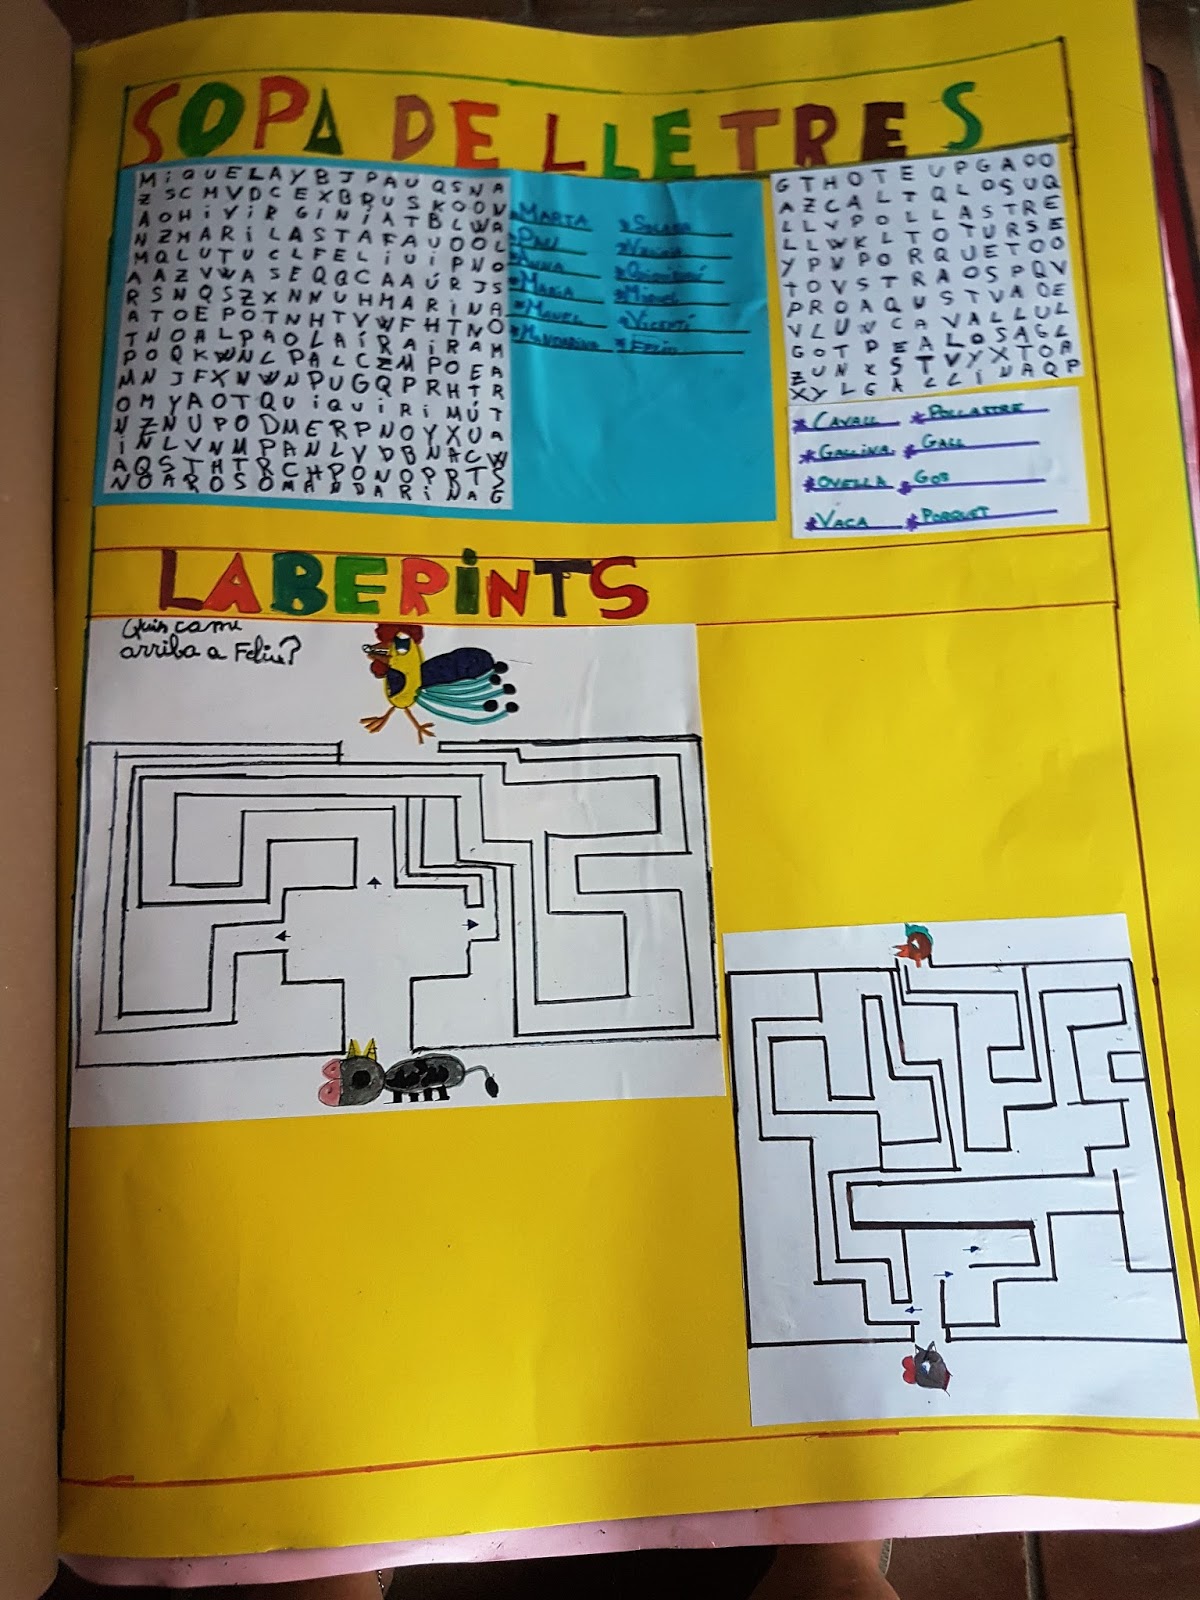 SOPA DE LLETRES
MiQUELAYBJPAUQSNA
ZSCMVDCEXBRUSKOOV
AOHiViRGiNiATBLWA
NZMARiLASTAFAUOOL
MQLUTUCLFELiUiPNO
AAZVWASEQQCAAÚRJS
RSNQSZXNNUHMARiNA
ATOEPOTNHTVWFHTNO
TNOALPAOLAiRAiRAM
POQKWNLPALCZMPOEA
MNJFXNWNPUGQPRHTR
OMYAOTQUiQUiRiMÚT
NZNUPODMERPNOYXUA
iNLVNMPANLVDBNACW
AQSTHTRCHPONOPRTS
NOAROSOMANDARiNAG
*MARTA
*PAU
*ANNA
*MARIA
*MANEL
*MANDARINA
*MIQUEL
*VICENTÍ
*FELIU
GTHOTEUPGAOO
AZCALTQLOSUQ
LLVPOLLASTRE
LLWKLTOTURSE
YPVPORQUETOO
TOVSTRAOSPQV
PROAQUSTVADE
VLUVCAVALLUL
GOTPEALOSAGL
ZUNXSTVYXTOA
XYLGALLINAQP
*CAVALL
*POLLASTRE
*GALLINA
*GALL
*OVELLA
*GOS
*VACA
*PORQUET
LABERiNTS
Quin camí
arriba a Feliu?